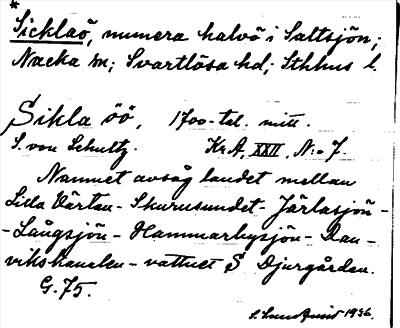 *
Sicklaö, numera halvö i Saltsjön;
Nacka sn; Svartlösa hd; Sthlms l.
Sikla öö, 1700-tal. mitt.
S. von Schultz. Kr.A, XXII, N:o 7.
Namnet avsåg landet mellan
Lilla Värtan - Skurusundet - Järlasjön -
- Långsjön - Hammarbysjön - Dan-
vikskanalen - vattnet S Djurgården.
G. 75.
1936.